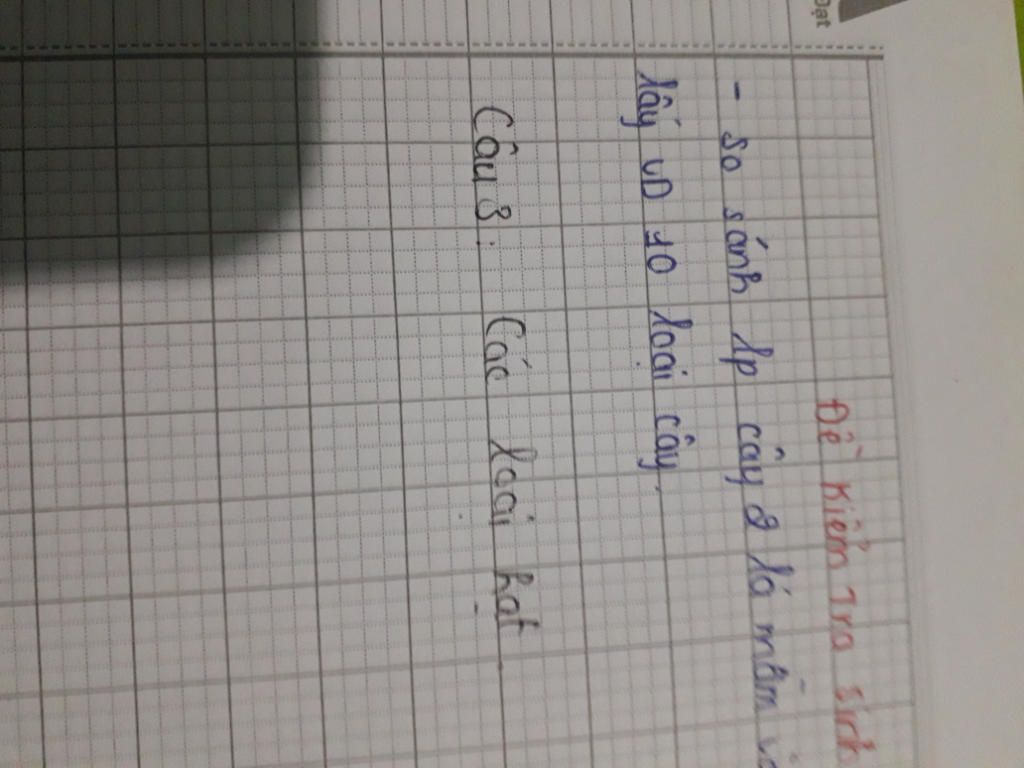 Đạt
Đề kiểm Tra sinh
- so sánh lp cây 2 lá mầm và
lấy VD 10 loại cây.
Câu 3: Các loại hạt